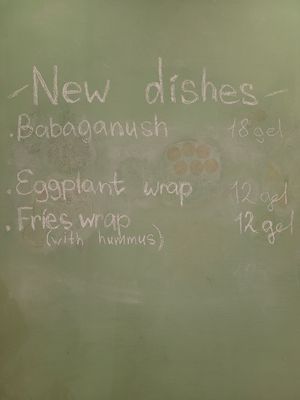 - New dishes -
. Babaganush 18 gel
. Eggplant wrap 12 gel
. Fries wrap 12 gel
(with hummus)